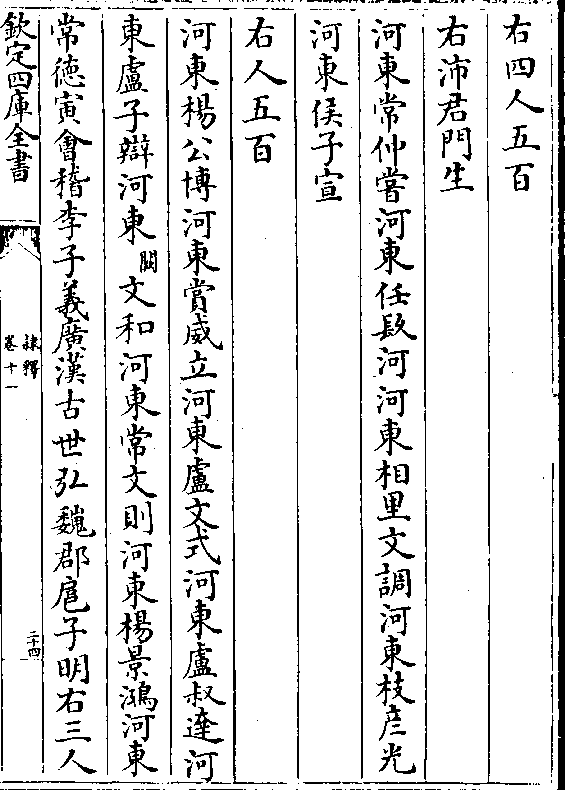 右四人五百
右沛君門生
河東常仲嘗河東任㪴河河東相里文調河東枝彦光
河東侯子宣
右人五百
河東楊公博河東賞威立河東盧文式河東盧叔達河
東盧子辯河東闕文和河東常文則河東楊景鴻河東
常德寅會稽李子義廣漢古世弘魏郡扈子明右三人
欽定四庫全書
隸釋
卷十一
二十四